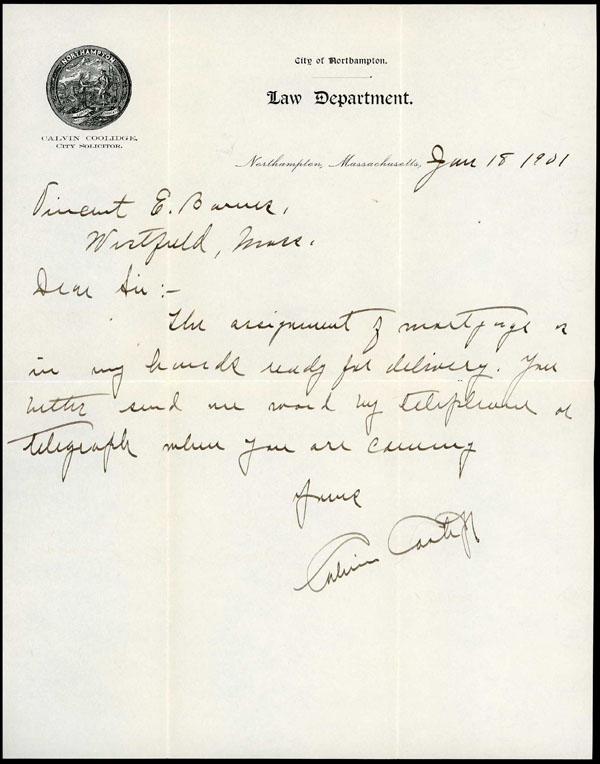 NORTHAMPTON
City of Northampton.
Law Department.
CALVIN COOLIDGE,
CITY SOLICITOR.
Northampton, Massachusetts, Jan 18 1901
Vincent E. Barnes,
Westfield, Mass.
Dear Sir :-
The assignment of mortgage is
in my hands ready for delivery. You
better send me word by telephone or
telegraph when you are coming
Yours
Calvin Coolidge